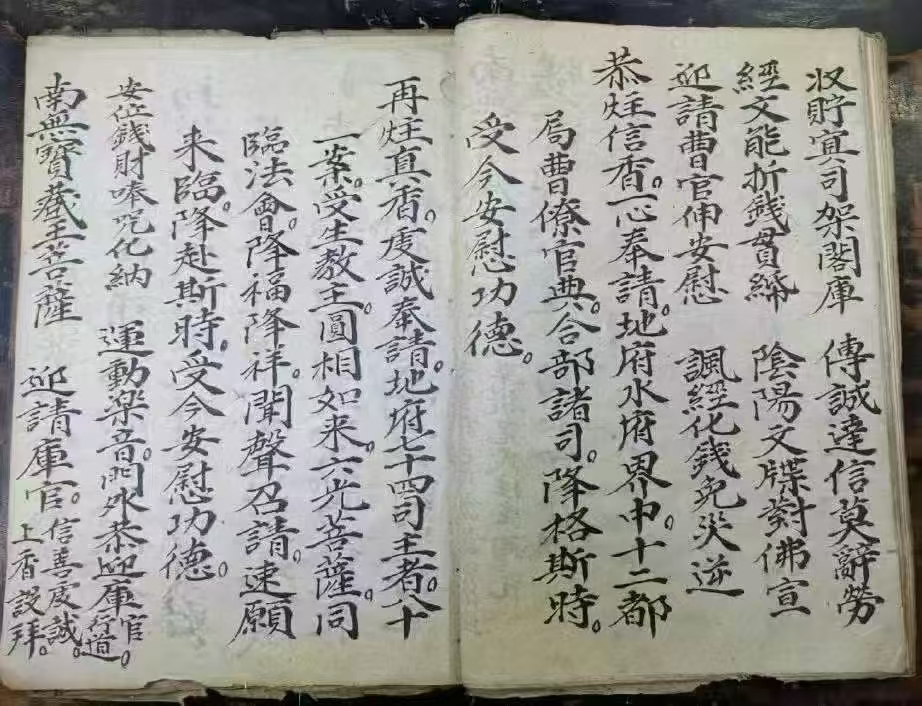 収貯冥司架閣庫　傳誠達信莫辭勞
經文能折錢貫緡　陰陽文牒對佛宣
迎請曹官伸安慰　諷經化錢免災逆
恭炷信香。一心奉請。地府水府界中。十二都
局曹僚官典。合部諸司。降格斯時。
受今安慰功德。
再炷真香。虔誠奉請。地府七十四司主者。八十
一案。受生教主。圓相如来。六光菩薩。同
臨法會。降福降祥。聞聲召請。速願
来臨。降赴斯時。受今安慰功德。
安位錢財唪咒化納　運動楽音。門外恭迎庫官行道。
南無寶藏王菩薩　迎請庫官。信善虔誠。上香設拜。